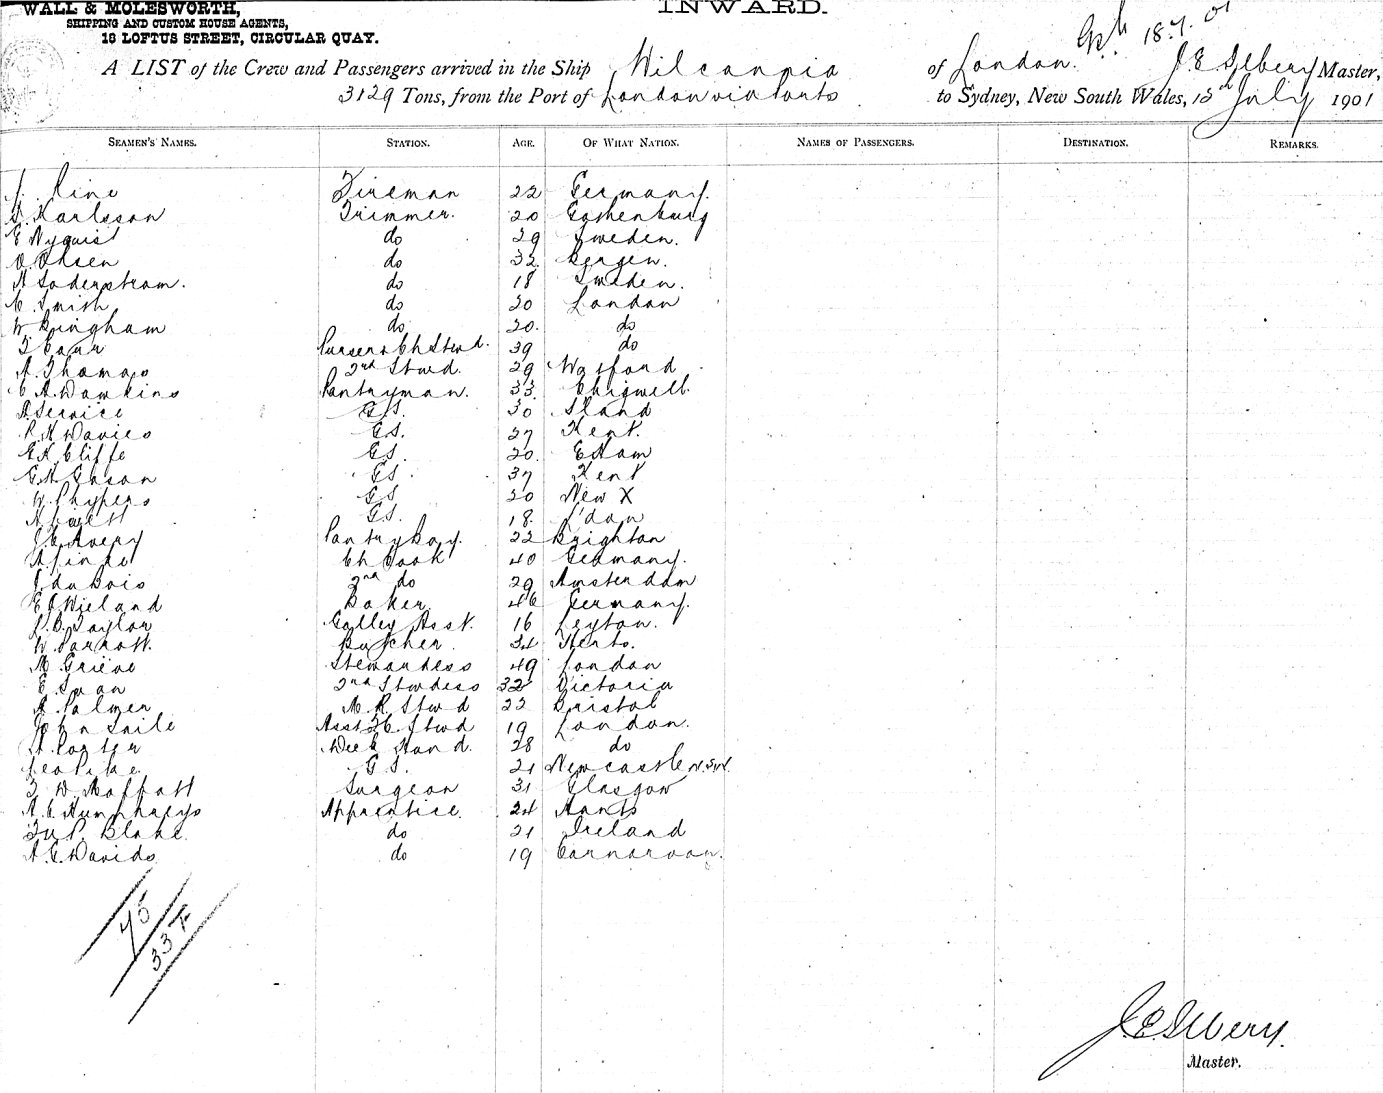 WALL & MOLESWORTH,
SHIPPING AND CUSTOM HOUSE AGENTS,
16 LOFTUS STREET, CIRCULAR QUAY.
INWARD.
18.7.01
A LIST of the Crew and Passengers arrived in the Ship Wilcannia of London. J. E. Ilbery Master,
3129 Tons, from the Port of London via Ports to Sydney, New South Wales, 15th July 1901
SEAMEN'S NAMES. STATION. AGE. OF WHAT NATION. NAMES OF PASSENGERS. DESTINATION. REMARKS.
J. Rine Fireman 22 Germany.
Karlsson Trimmer. 20 Gothenburg
E Nyquist do 29 Sweden.
O. Olsen do 32 Bergen.
A Soderstrom. do 18 Sweden.
C. Smith do 20 London
W Bingham do 20. do
T Carr Purser & Ch Stwd. 39 do
A. Thomas 2nd Stwd. 29 Watford
C A. Dawkins Pantryman. 33. Chigwell.
A Service G.S. 30 Strand
R. H Davies G.S. 27 Kent.
Cliffe G.S. 20. E Ham
G. H Gibson G.S. 37 Kent
W. Phypers G.S. 20 New X
G.S. 18. L'don
J. C. Avery Pantry Boy. 22 Brighton
A Linde Ch Cook 40 Germany.
J du Bois 2nd do 29 Amsterdam
E J Wieland Baker 46 Germany.
L. B. Taylor Galley Asst. 16 Leyton.
W Parrott. Butcher. 34 Herts.
M. Grieve Stewardess 49 London
E. Swan 2nd Stwdess 32 Victoria
A. Palmer M. R. Stwd 22 Bristol
John Saile Asst Stwd 19 London.
A. Porter Deck Hand. 28 do
Leo Pike G.S. 21 Newcastle N.S.W.
D. Moffatt Surgeon 31 Glasgow
A. C. Humphreys Apprentice. 24 Hants
P. Blake do 21 Ireland
A. E. Davids do 19 Carnarvon.
75
33
J. E. Ilbery.
Master.